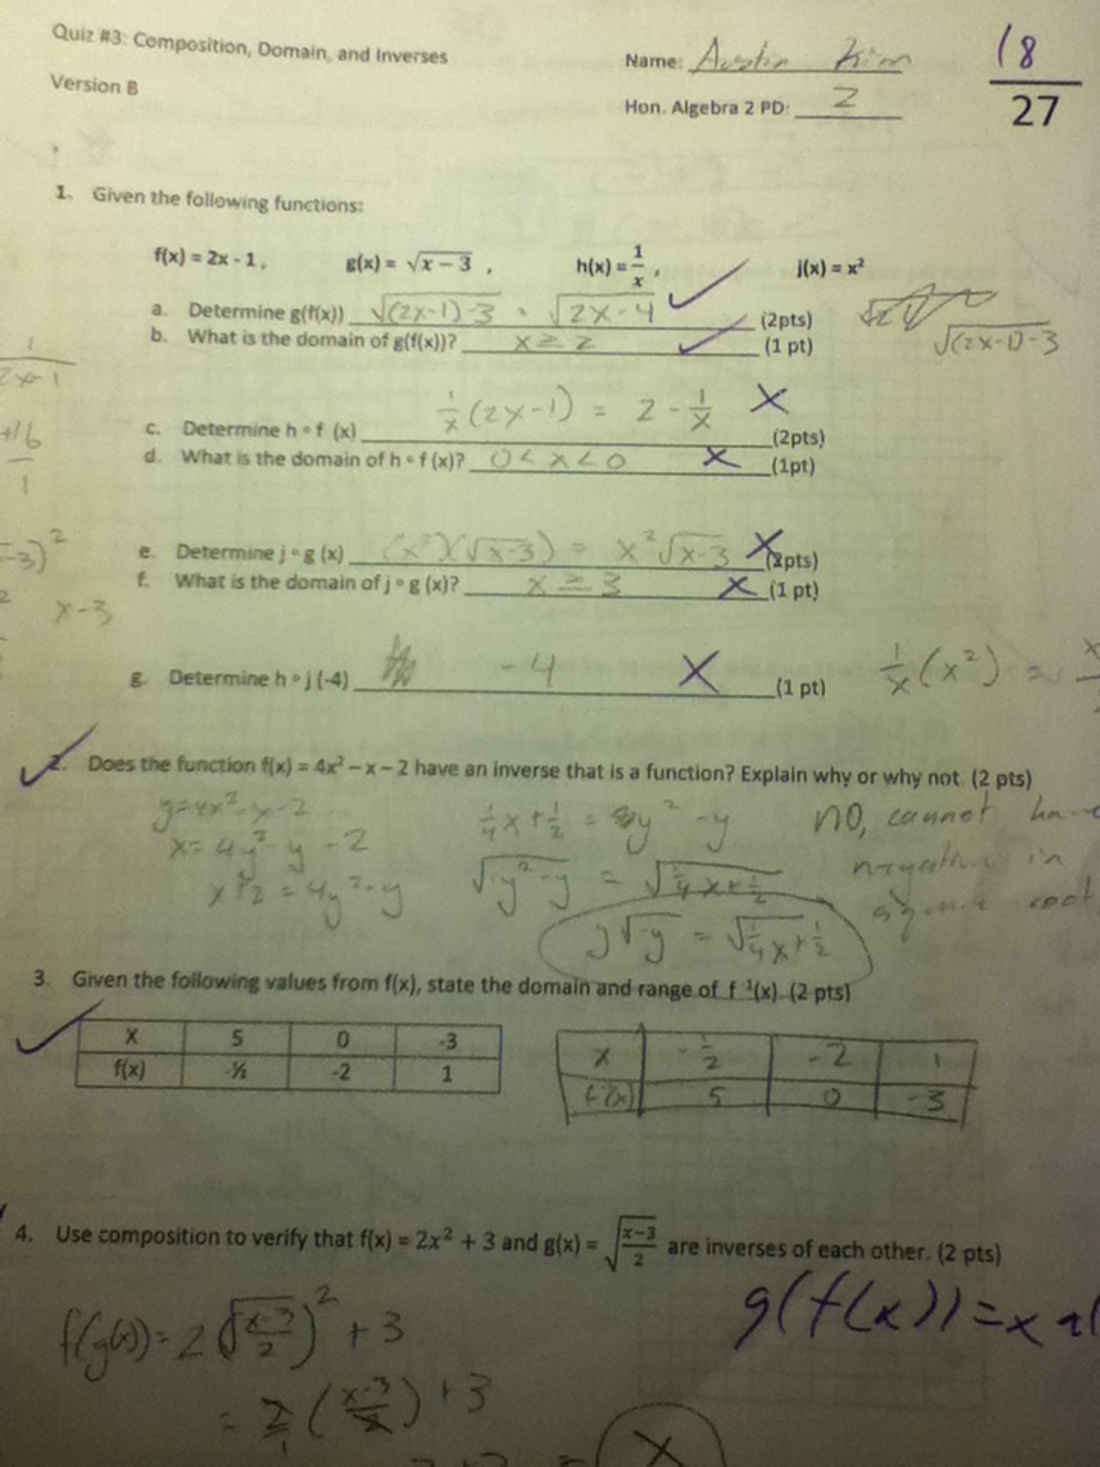 Quiz #3: Composition, Domain, and Inverses
Version B
Name: Austin Kim
Hon. Algebra 2 PD: 2
18
27
1. Given the following functions:
f(x) = 2x - 1, g(x) = √(x − 3), h(x) = 1/x, j(x) = x²
a. Determine g(f(x)) √((2x-1)-3) = √(2x-4) (2pts)
√((2x-1)-3)
b. What is the domain of g(f(x))? x ≥ 2 (1 pt)
1
2x-1
c. Determine h∘f (x) 1/x (2x-1) = 2 - 1/x X (2pts)
d. What is the domain of h∘f (x)? 0 < x < 0 X (1pt)
e. Determine j∘g (x) (x²)(√(x-3)) = x²√(x-3) X (2pts)
f. What is the domain of j∘g (x)? x ≥ 3 X (1 pt)
x-3
g. Determine h∘j (-4) -4 X (1 pt)
1/x (x²) =
2. Does the function f(x) = 4x² − x − 2 have an inverse that is a function? Explain why or why not. (2 pts)
y=4x²-x-2
x= 4y²-y -2
x+2 = 4y²-y
1/4x + 1/2 = y² -y
√(-y²-y) = √(1/4x+1/2)
y√-y = √(1/4x+1/2)
no, cannot
negative in
root
3. Given the following values from f(x), state the domain and range of f⁻¹(x). (2 pts)
X 5 0 -3
f(x) -½ -2 1
X -1/2 -2 1
f⁻¹(x) 5 0 -3
4. Use composition to verify that f(x) = 2x² + 3 and g(x) = √((x−3)/2) are inverses of each other. (2 pts)
g(f(x))=x
f(g(x))= 2(√((x-3)/2))² + 3
= 2/1 ((x-3)/2) + 3
= X